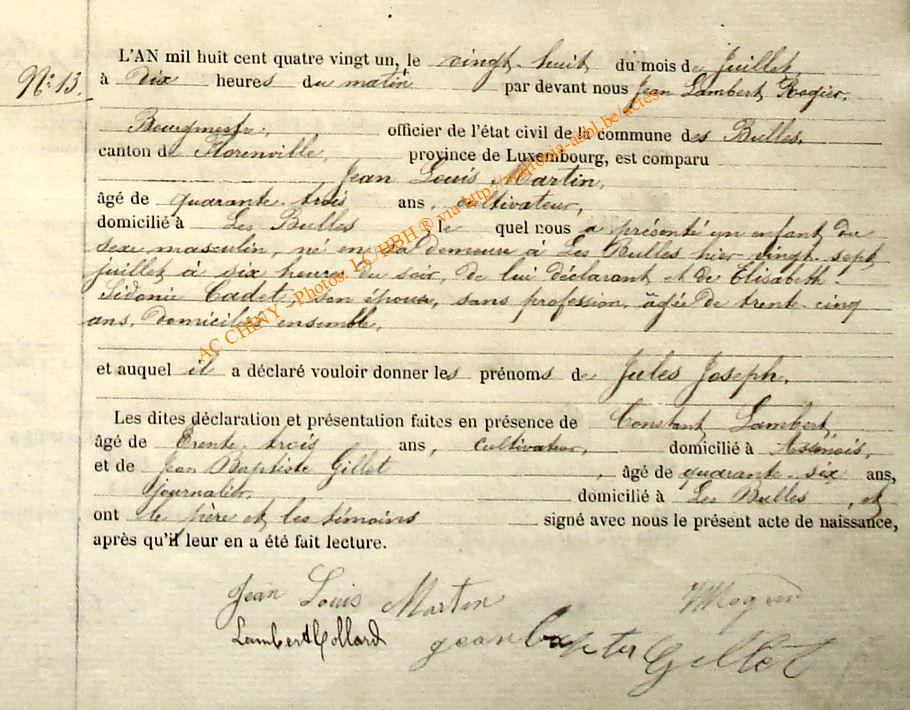 N° 13.
L'AN mil huit cent quatre vingt un, le vingt-huit du mois de Juillet,
à Dix heures du matin par devant nous Jean Lambert Rogier,
Bourgmestre, officier de l'état civil de la commune des Bulles,
canton de Florenville, province de Luxembourg, est comparu
Jean Louis Martin,
âgé de quarante-trois ans, cultivateur,
domicilié à Les Bulles, le quel nous a présenté un enfant du
sexe masculin, né en sa demeure à Les Bulles hier vingt-sept
juillet à six heures du soir, de lui déclarant et de Elisabeth
Sidonie Cadet, son épouse, sans profession, âgée de trente-cinq
ans, domiciliés ensemble,
et auquel il a déclaré vouloir donner les prénoms de Jules Joseph.
Les dites déclaration et présentation faites en présence de Constant Lambert,
âgé de Trente-trois ans, cultivateur, domicilié à
et de Jean Baptiste Gillet, âgé de quarante-six ans,
journalier, domicilié à Les Bulles, et
ont le père et les témoins signé avec nous le présent acte de naissance,
après qu'il leur en a été fait lecture.
Jean Louis Martin
Lambert Collard
jean Gillet
AC CHINY - Photos LC/HBH ® via http://luxonia-asbl.be/actes